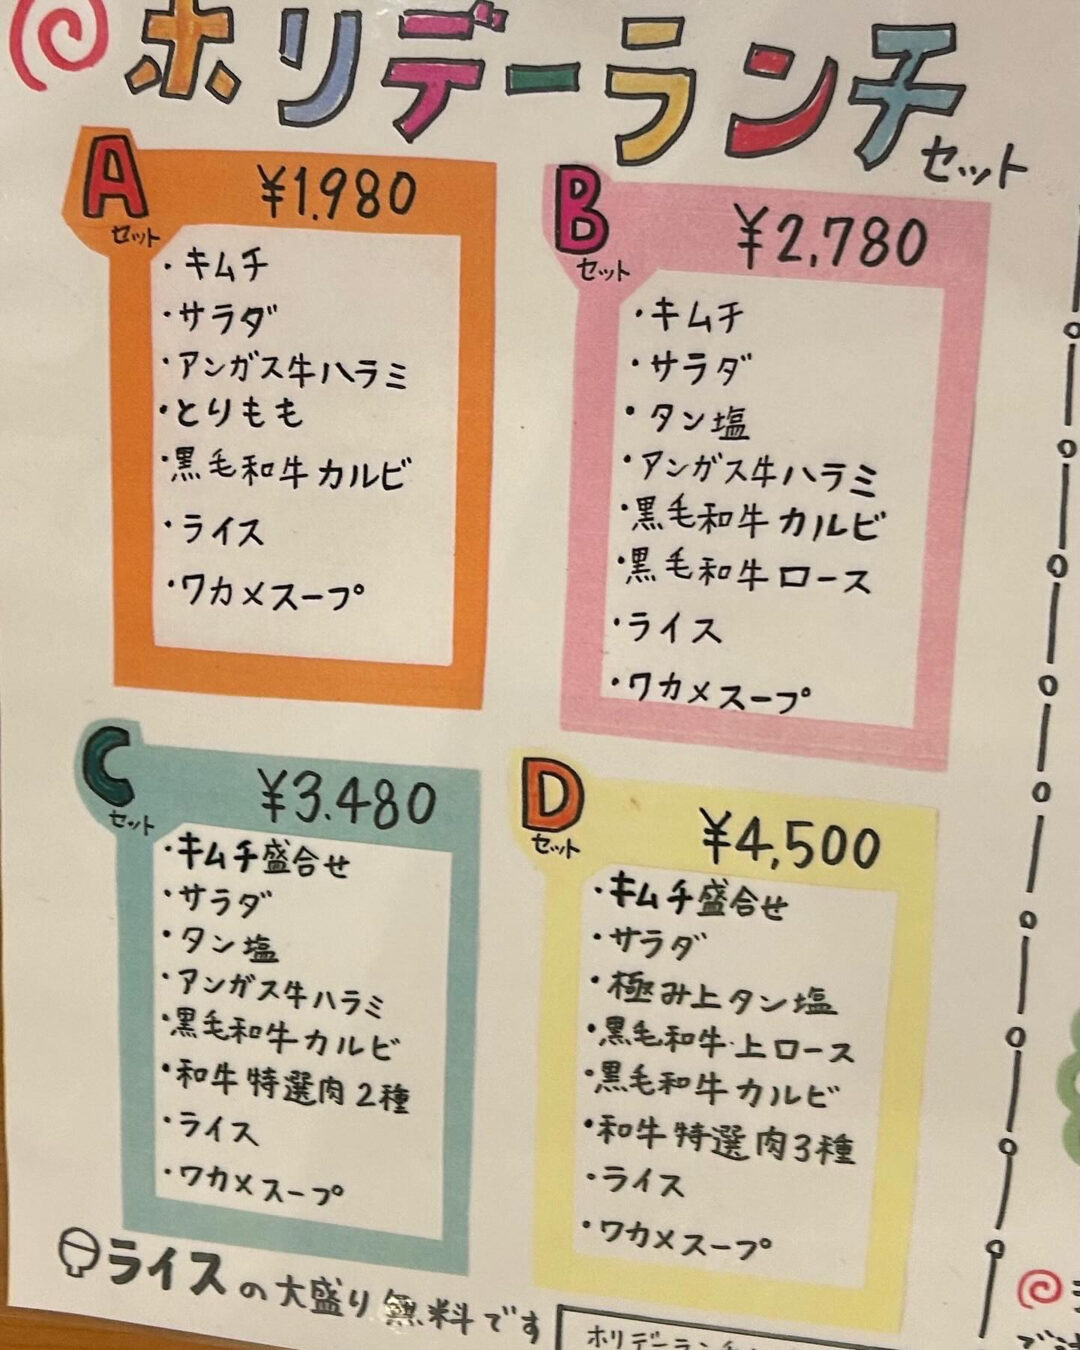 ホリデーランチ
セット
A
セット
¥1.980
・キムチ
・サラダ
・アンガス牛ハラミ
・とりもも
・黒毛和牛カルビ
・ライス
・ワカメスープ
B
セット
¥2,780
・キムチ
・サラダ
・タン塩
・アンガス牛ハラミ
・黒毛和牛カルビ
・黒毛和牛ロース
・ライス
・ワカメスープ
C
セット
¥3.480
・キムチ盛合せ
・サラダ
・タン塩
・アンガス牛ハラミ
・黒毛和牛カルビ
・和牛特選肉2種
・ライス
・ワカメスープ
D
セット
¥4,500
・キムチ盛合せ
・サラダ
・極み上タン塩
・黒毛和牛上ロース
・黒毛和牛カルビ
・和牛特選肉3種
・ライス
・ワカメスープ
ライスの大盛り無料です
ホリデーランチ